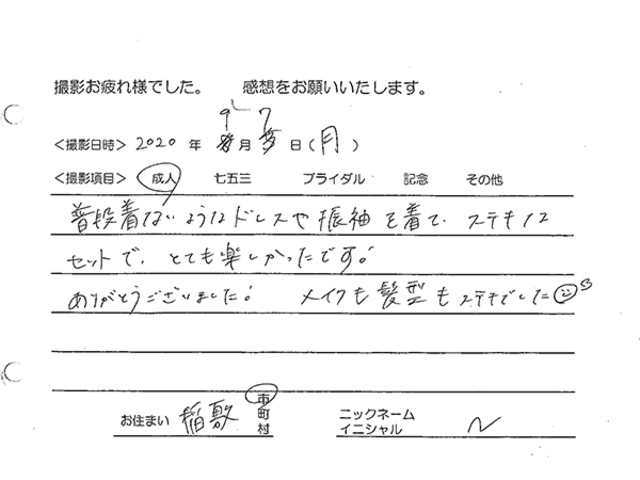 撮影お疲れ様でした。 感想をお願いいたします。
9 7
<撮影日時> 2020 年 月 日(月)
<撮影項目> 成人 七五三 ブライダル 記念 その他
普段着ないようなドレスや振袖を着て、ステキな
セットで、とても楽しかったです!
ありがとうございました! メイクも髪型もステキでした
お住まい 稲敷 市町村 ニックネーム
イニシャル N